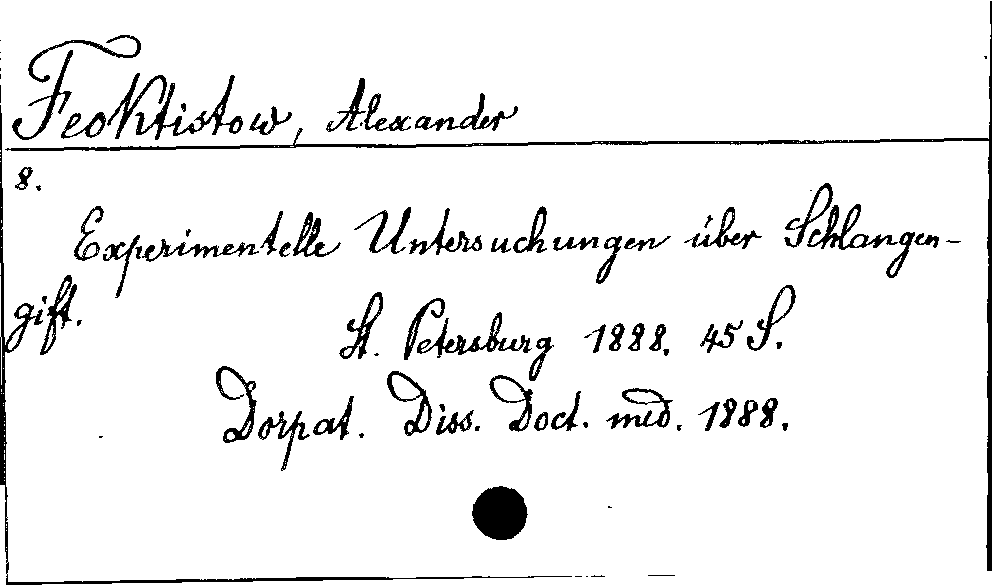 Feoktistow, Alexander
8.
Experimentelle Untersuchungen über Schlangen-
gift.
St. Petersburg 1888. 45 S.
Dorpat. Diss. Doct. med. 1888.